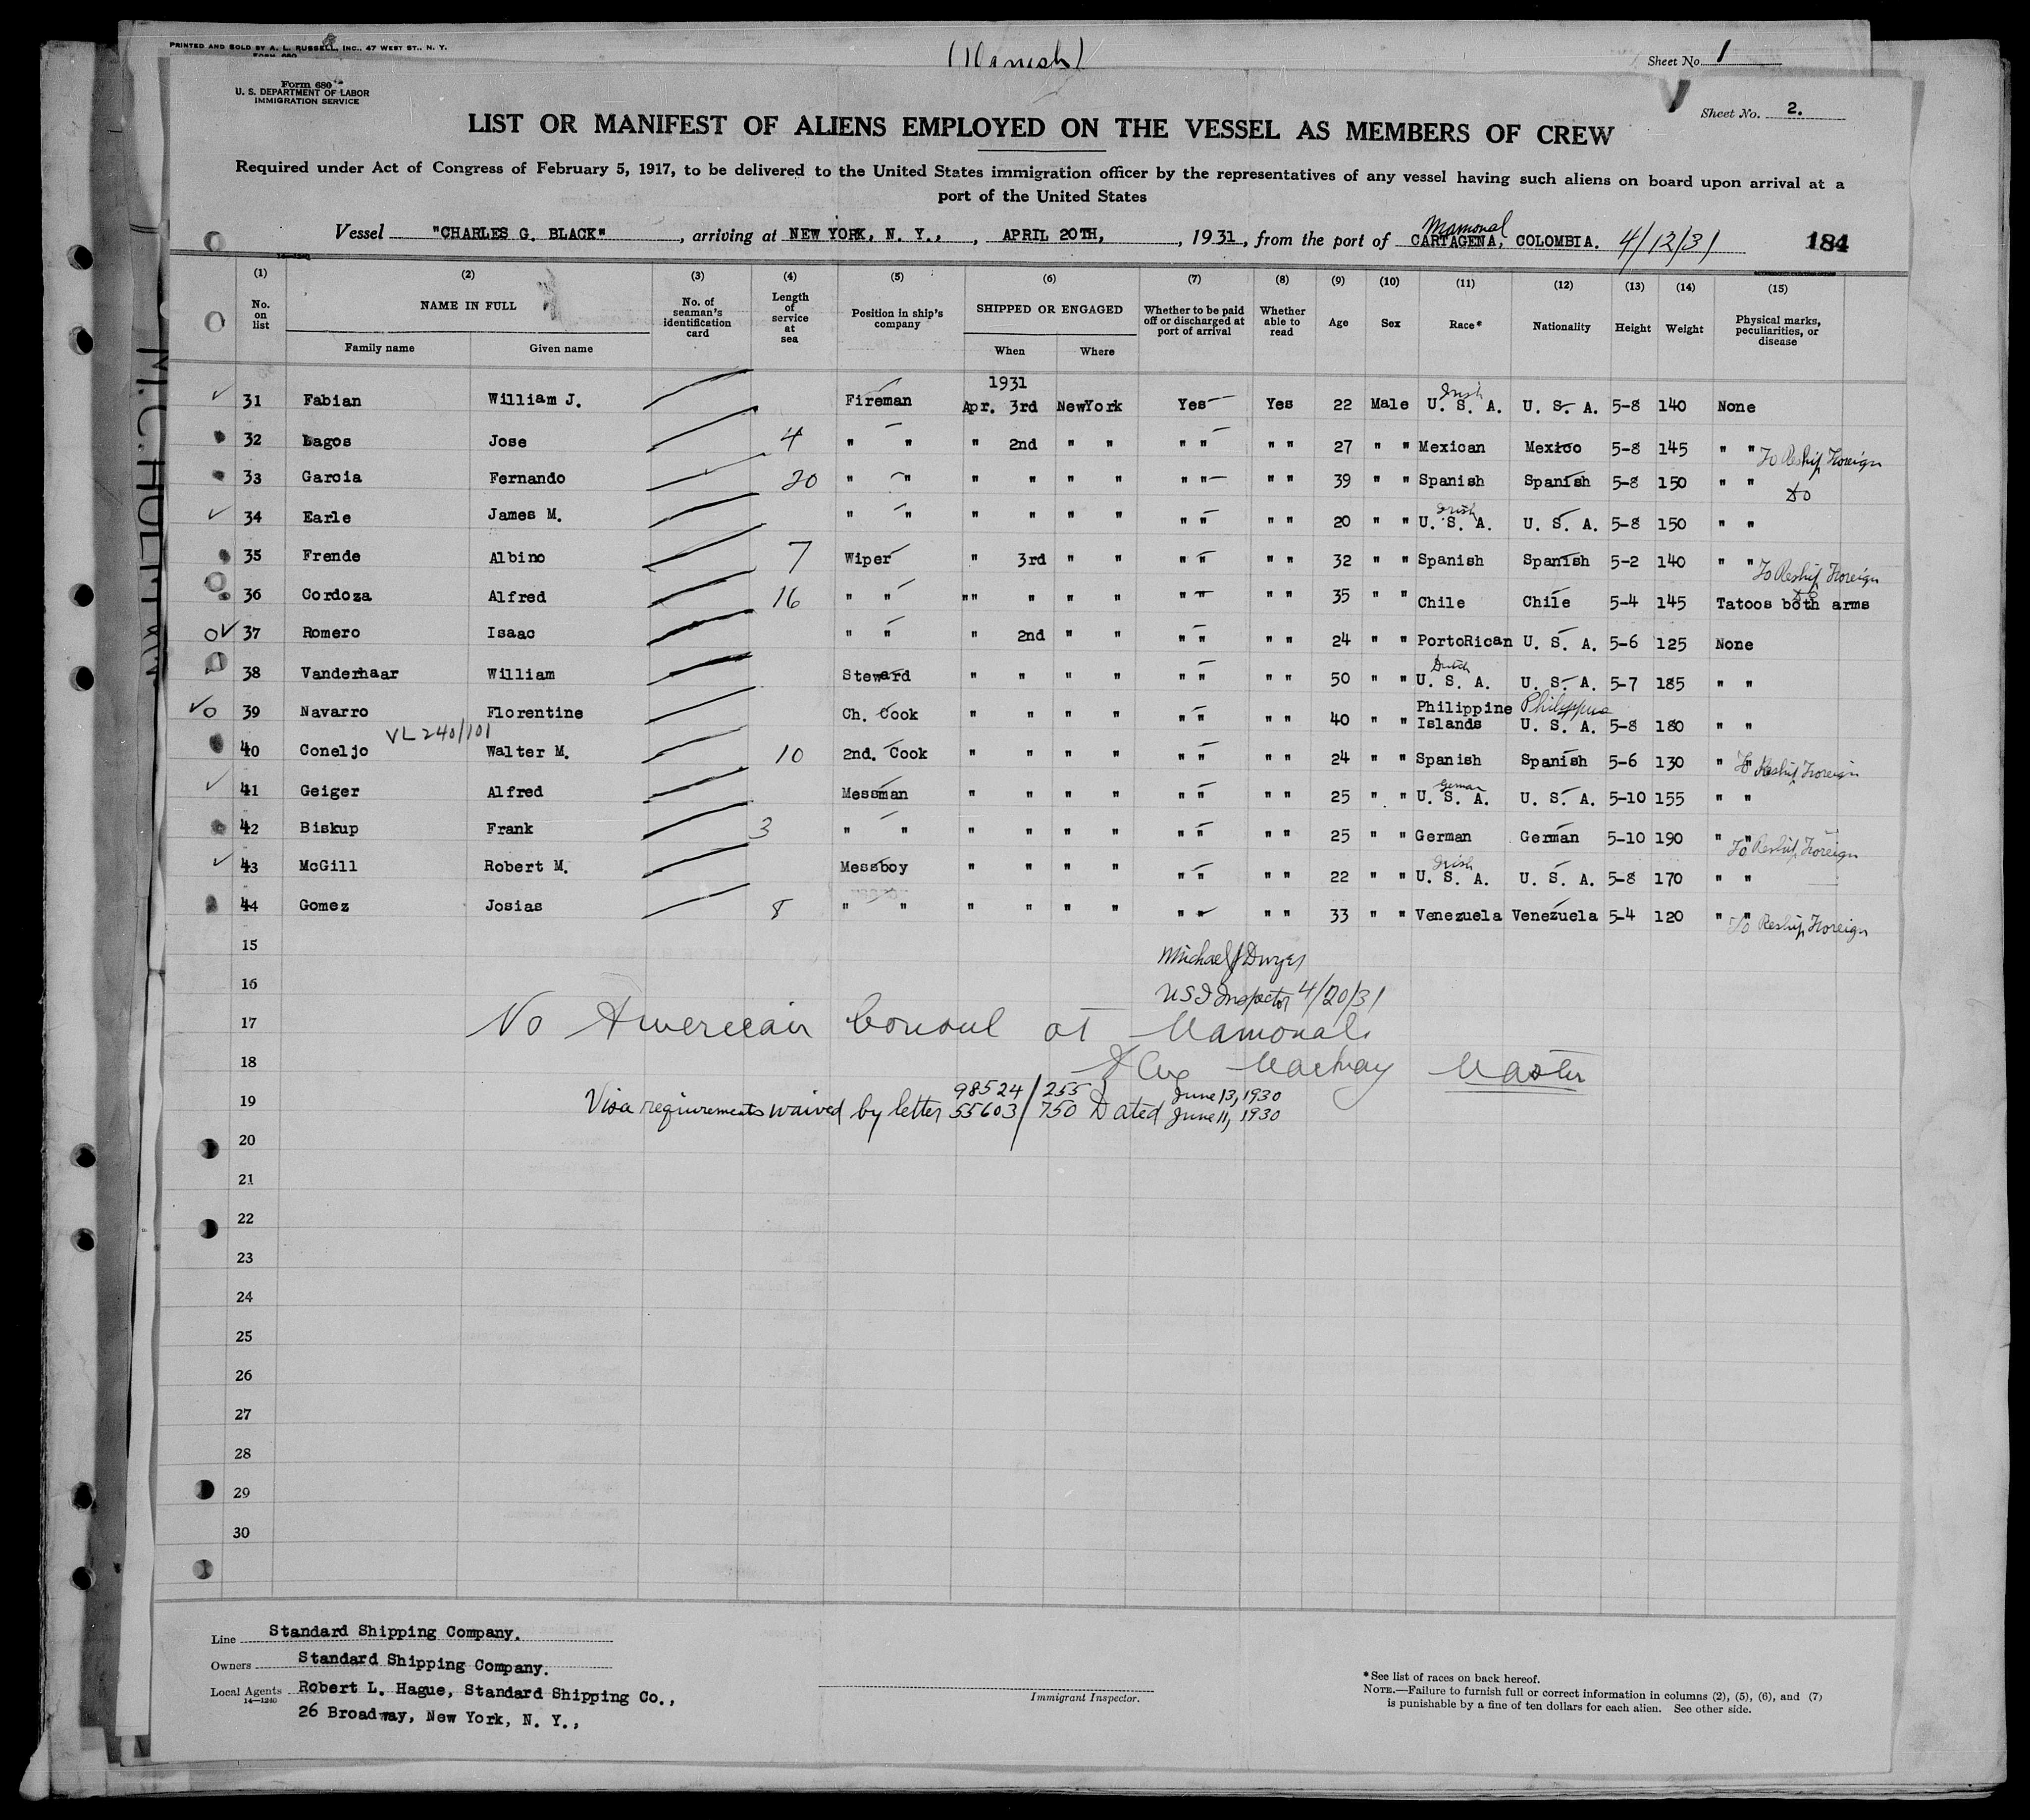 PRINTED AND SOLD BY A. L. RUSSELL, INC., 47 WEST ST., N. Y.
Sheet No. 1
Form 680
U. S. DEPARTMENT OF LABOR
IMMIGRATION SERVICE
Sheet No. 2.
LIST OR MANIFEST OF ALIENS EMPLOYED ON THE VESSEL AS MEMBERS OF CREW
Required under Act of Congress of February 5, 1917, to be delivered to the United States immigration officer by the representatives of any vessel having such aliens on board upon arrival at a
port of the United States
Mamonal
Vessel "CHARLES G. BLACK", arriving at NEW YORK, N. Y., , APRIL 20TH, , 1931, from the port of CARTAGENA, COLOMBIA. 4/12/31 184
(1) (2) (3) (4) (5) (6) (7) (8) (9) (10) (11) (12) (13) (14) (15)
No. on list NAME IN FULL Family name Given name No. of seaman's identification card Length of service at sea Position in ship's company SHIPPED OR ENGAGED When Where Whether to be paid off or discharged at port of arrival Whether able to read Age Sex Race* Nationality Height Weight Physical marks, peculiarities, or disease
1931 Irish
31 Fabian William J. Fireman Apr. 3rd NewYork Yes Yes 22 Male U. S. A. U. S. A. 5-8 140 None
32 Lagos Jose 4 " " " 2nd " " " " " " 27 " " Mexican Mexico 5-8 145 " " To Reship Foreign
33 Garcia Fernando 20 " " " " " " " " " " 39 " " Spanish Spanish 5-8 150 " " do
Irish
34 Earle James M. " " " " " " " " " " 20 " " U. S. A. U. S. A. 5-8 150 " "
35 Frende Albino 7 Wiper " 3rd " " " " " " 32 " " Spanish Spanish 5-2 140 " " To Reship Foreign
36 Cordoza Alfred 16 " " "" " " " " " " " 35 " " Chile Chile 5-4 145 Tatoos both arms
37 Romero Isaac " " " 2nd " " " " " " 24 " " PortoRican U. S. A. 5-6 125 None
Dutch
38 Vanderhaar William Steward " " " " " " " " 50 " " U. S. A. U. S. A. 5-7 185 " "
Philippine
39 Navarro Florentine Ch. Cook " " " " " " " " 40 " " Philippine Islands U. S. A. 5-8 180 " "
VL 240/101
40 Coneljo Walter M. 10 2nd. Cook " " " " " " " " 24 " " Spanish Spanish 5-6 130 " " To Reship Foreign
German
41 Geiger Alfred Messman " " " " " " " " 25 " " U. S. A. U. S. A. 5-10 155 " "
42 Biskup Frank 3 " " " " " " " " " " 25 " " German German 5-10 190 " " To Reship Foreign
Irish
43 McGill Robert M. Messboy " " " " " " " " 22 " " U. S. A. U. S. A. 5-8 170 " "
44 Gomez Josias 8 " " " " " " " " " " 33 " " Venezuela Venezuela 5-4 120 " " To Reship Foreign
15 Michael J Dwyer
16 USI Inspector 4/20/31
17 No American Consul at Mamonal
18 Master
98524/255 June 13, 1930
19 Visa requirements waived by letter 55603/750 Dated June 11, 1930
20
21
22
23
24
25
26
27
28
29
30
Line Standard Shipping Company.
Owners Standard Shipping Company.
Local Agents Robert L. Hague, Standard Shipping Co.,
14—1240
26 Broadway, New York, N. Y.,
Immigrant Inspector.
*See list of races on back hereof.
NOTE.—Failure to furnish full or correct information in columns (2), (5), (6), and (7)
is punishable by a fine of ten dollars for each alien. See other side.